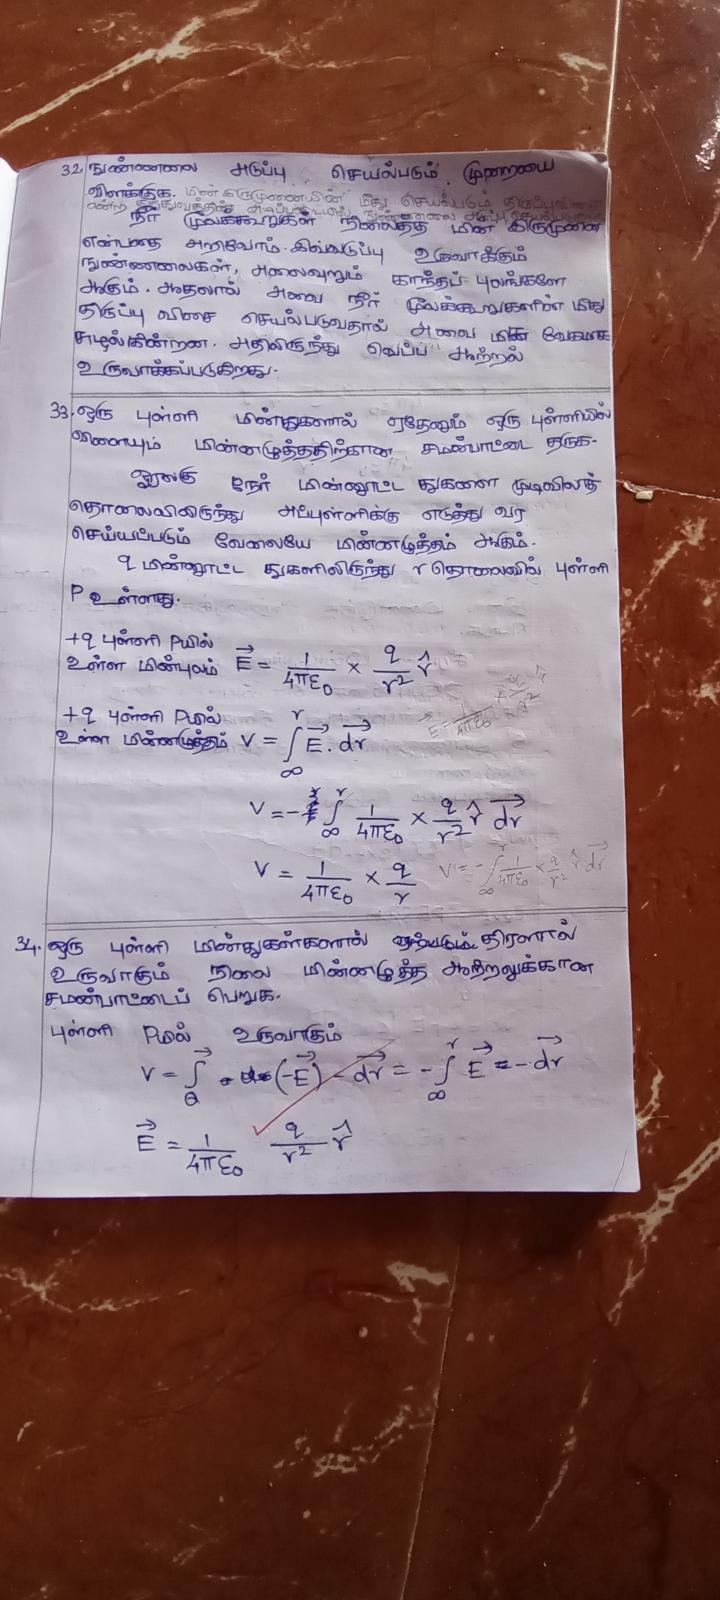 32. நுண்ணலை அடுப்பு செயல்படும் முறையை
விளக்குக. மின் இருமுனையின் மீது செயல்படும் திருப்புவிசை
என்ற தத்துவத்தின் அடிப்படையில் நுண்ணலை அடுப்பு செயல்படுகிறது
நீர் மூலக்கூறுகள் நிலைத்த மின் இருமுனை
என்பதை அறிவோம். இவ்வடுப்பு உருவாக்கும்
நுண்ணலைகள், அலைவுறும் காந்தப் புலங்களே
ஆகும். ஆதலால் அவை நீர் மூலக்கூறுகளின் மீது
திருப்பு விசை செயல்படுவதால் அவை மிக வேகமாக
சுழல்கின்றன. அதிலிருந்து வெப்ப ஆற்றல்
உருவாக்கப்படுகிறது.
33. ஒரு புள்ளி மின்துகளால் ஏதேனும் ஒரு புள்ளியில்
விளையும் மின்னழுத்ததிற்கான சமன்பாட்டை தருக.
ஓரலகு நேர் மின்னூட்ட துகளை முடிவிலாத்
தொலைவிலிருந்து அப்புள்ளிக்கு எடுத்து வர
செய்யப்படும் வேலையே மின்னழுத்தம் ஆகும்.
q மின்னூட்ட துகளிலிருந்து r தொலைவில் புள்ளி
P உள்ளது.
+q புள்ளி Pயில்
உள்ள மின்புலம் E⃗ = 1/4πε₀ × q/r² r̂
E⃗ = 1/4πε₀ × q/r² r̂
+q புள்ளி Pயில்
உள்ள மின்னழுத்தம் V = ∫_∞^r E⃗ . dr⃗
V = - ∫_∞^r 1/4πε₀ × q/r² r̂ dr⃗
V = 1/4πε₀ × q/r
V = - ∫_∞^r 1/4πε₀ × q/r² r̂ dr⃗
34. ஒரு புள்ளி மின்துகள்களால் திரளால்
உருவாகும் நிலை மின்னழுத்த ஆற்றலுக்கான
சமன்பாட்டைப் பெறுக.
புள்ளி Pயில் உருவாகும்
V = ∫ (-E⃗) - dr⃗ = - ∫_∞^r E⃗ - dr⃗
E⃗ = 1/4πε₀ q/r² r̂